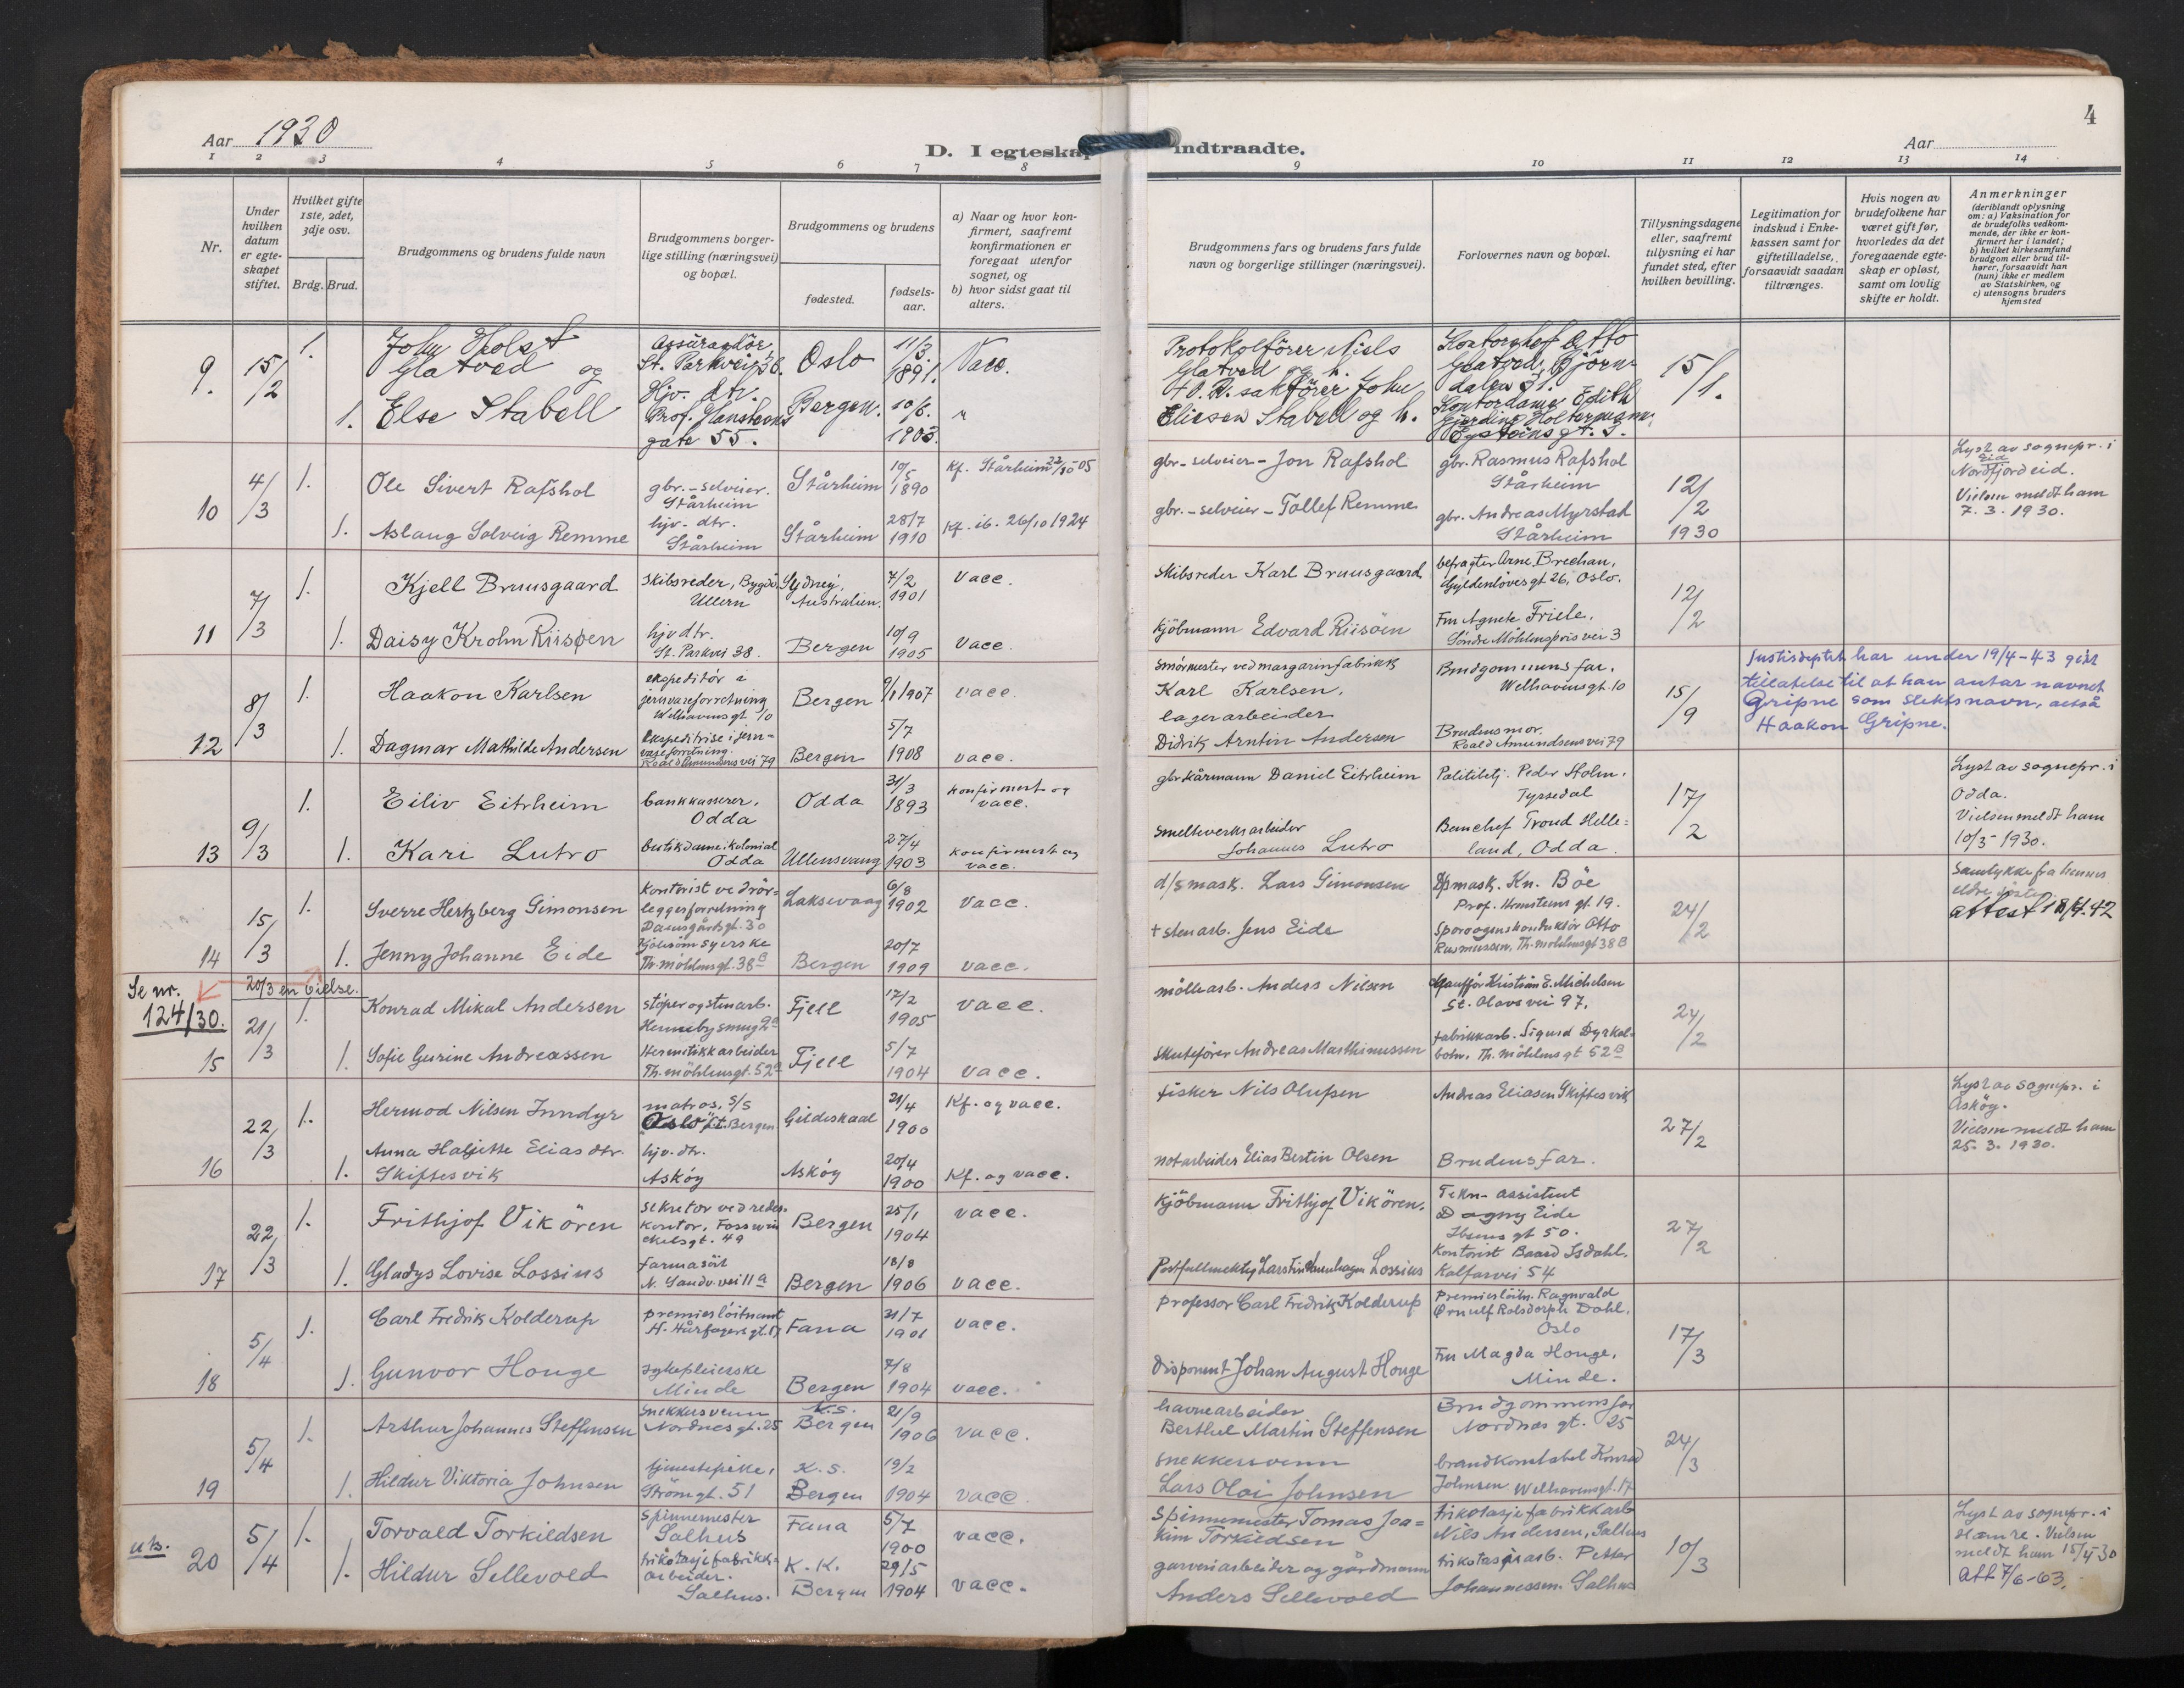 Aar 1930
D. I egteskap indtraadte.
Aar
4
1 2 3 4 5 6 7 8 9 10 11 12 13 14
Nr.
Under hvilken datum er egteskapet stiftet.
Hvilket gifte 1ste, 2det, 3dje osv.
Brdg. Brud.
Brudgommens og brudens fulde navn
Brudgommens borgerlige stilling (næringsvei) og bopæl.
Brudgommens og brudens
fødested.
fødselsaar.
a) Naar og hvor konfirmert, saafremt konfirmationen er foregaat utenfor sognet, og
b) hvor sidst gaat til alters.
Brudgommens fars og brudens fars fulde navn og borgerlige stillinger (næringsvei).
Forlovernes navn og bopæl.
Tillysningsdagene eller, saafremt tillysning ei har fundet sted, efter hvilken bevilling.
Legitimation for indskud i Enkekassen samt for giftetilladelse, forsaavidt saadan tiltrænges.
Hvis nogen av brudefolkene har været gift før, hvorledes da det foregaaende egteskap er opløst, samt om lovlig skifte er holdt.
Anmerkninger
(deriblandt oplysning om: a) Vaksination for de brudefolks vedkommende, der ikke er konfirmert her i landet; b) hvilket kirkesamfund brudgom eller brud tilhører, forsaavidt han (hun) ikke er medlem av Statskirken, og c) utensogns bruders hjemsted
9. 15/2 1. John Holst Glatved og
Assurandør St. Parkvei 36. Oslo 11/3. 1891. Vacc.
Protokolfører Niels Glatved og h.
Kontorchef Otto Glatved, Bjørndalen 31.
15/1.
1. Else Stabell
Hjv. dtr. Prof. Hansteens gate 55. Bergen. 10/6. 1903. "
O.R. sakfører John Eliesen Stabell og h.
Kontordame Edith Gjerding Holtermann, Eysteins gt. 5.
10 4/3 1. Ole Sivert Rafshol
gbr.-selveier. Stårheim Stårheim 10/5 1890 Kf. Stårheim 22/10-05
gbr-selveier - Jon Rafshol
gbr. Rasmus Rafshol Stårheim
12/2 1930
Lyst av sognepr. i Eid Nordfjordeid.
Vielsen meldt ham 7.3.1930.
1. Aslaug Solveig Remme
hjv- dtr. Stårheim Stårheim 28/7 1910 Kf. ib. 26/10 1924
gbr.-selveier - Tollef Remme
gbr. Andreas Myrstad Stårheim
11 7/3 1. Kjell Bruusgaard
Skibsreder, Bygdø, Ullern Sydney, Australien. 7/2 1901 Vacc.
Skibsreder Karl Bruusgaard
befragter Arne Brechan, Gyldenløvesgt 26, Oslo.
12/2
1. Daisy Krohn Riisøen
hjv dtr. St. Parkvei 38. Bergen 10/9 1905 Vacc.
Kjöbmann Edvard Riisöen
Fru Agnete Friele. Søndre Möhlenpris vei 3
12 8/3 1. Haakon Karlsen
ekspeditör i jernvareforretning Welhavensgt 10 Bergen 9/1 1907 vacc.
Smörmester ved margarinfabrikk Karl Karlsen.
Brudgommens far. Welhavensgt. 10
15/9
Justisdeptet har under 19/4-43 gitt
tillatelse til at han antar navnet
Gripne som slektsnavn, altså
Haakon Gripne.
1. Dagmar Mathilde Andersen
Ekspeditrise i jernvareforretning. Roald Amundsens vei 79 Bergen 5/7 1908 vacc.
lagerarbeider Didrik Arntin Andersen
Brudens mor. Roald Amundsens vei 79
13 9/3 1. Eiliv Eitrheim
bankkasserer. Odda Odda 31/3 1893 konfirmert og vacc.
gbr kårmann Daniel Eitrheim
Politibetj. Peder Holm. Tyssedal
17/2
Lyst av sognepr. i Odda.
Vielsen meldt ham 10/3-1930.
1. Kari Lutro
butikdame i kolonial Odda Ullensvang 27/4 1903 konfirmert og vacc.
Smelteverksarbeider Johannes Lutro
Banchef Trond Helleland, Odda.
14 15/3 1. Sverre Hertzberg Simonsen
Kontorist ved rörleggerforretning Damsgårdsgt. 30 Laksevaag 6/8 1902 vacc.
d/s mask. Lars Simonsen
D/s mask. Kn. Böe Prof. Hansteens gt. 19.
24/2
Samtykke fra hennes eldre søster
attest 18/4.42
1. Jenny Johanne Eide
kjolesömsyerske Th. möhlensgt. 38 B Bergen 20/7 1909 vacc.
+ sten arb. Jens Eide
Sporvognskonduktör Otto Rasmussen, Th. möhlensgt 38 B
Se nr. 124/30.
20/3 en vielse.
15 21/3 1. Konrad Mikal Andersen
stöper og stenarb. Fjell 17/2 1905 vacc.
möllearb. Anders Nilsen
Chaufför Kristian E. Michelsen St. Olavs vei 97.
24/2
1. Sofie Gurine Andreassen
Hermitikkarbeider Th. möhlensgt. 52 a Fjell 5/7 1904 vacc.
Skutefører Andreas Marthinussen
fabrikkarb. Sigurd Dyrkolbotn. Th. möhlensgt 52 a
16 22/3 1. Hermod Nilsen Inndyr
matros. s/s Oslo Bergen Gildeskaal 21/4 1900 Kf. og vacc.
fisker Nils Olufsen
Andreas Eliasen Skiftesvik
27/2
Lyst av sognepr. i Asköy.
Vielsen meldt ham 25.3.1930.
1. Anna Elias dtr. Skiftesvik
hjv. dtr. Asköy Asköy 20/4 1900 Kf. og vacc.
notarbeider Elias Bertin Olsen
Brudens far.
17 22/3 1. Frithjof Vikören
Sekretær ved rederkontor. Fosswinckelsgt. 49 Bergen 25/1 1904 vacc.
Kjöbmann Frithjof Vikören.
Tekn- assistent Dagny Eide Ibsens gt 50.
27/2
1. Gladys Lovise Lossius
farmasöit N. Sandv. vei 11 a Bergen 18/8 1906 vacc.
Postfullmektig Lars Lossius
Kontorist Baard Isdahl. Kalfarvei 54
18 5/4 1. Carl Fredrik Kolderup
premierlöitnant H. Hårfagersgt. Fana 21/7 1901 vacc.
professor Carl Fredrik Kolderup
Premierlöitn. Ragnvald Ørnulf Rolsdorph Dahl. Oslo
17/3
1. Gunvor Houge
sykepleierske Minde Bergen 7/8 1904 vacc.
Disponent Johan August Houge
Fru Magda Houge. Minde.
19 5/4 1. Arthur Johannes Steffensen
Snekkersvenn Nordnesgt. 25 K.S. Bergen 21/9 1906 vacc.
havnearbeider Berthel Martin Steffensen
Brudgommens far Nordnæs gt. 25
24/3
1. Hildur Viktoria Johnsen
tjenestepike, Strömgt. 51 K.S. Bergen 19/2 1904 vacc.
snekkersvenn Lars Olai Johnsen
brandkonstabel Konrad Johnsen Welhavensgt. 17
u.b. 20 5/4 1. Torvald Torkildsen
Spinnemester Salhus Fana 5/7 1900 vacc.
Spinnemester Tomas Joakim Torkildsen
trikotasjefabrikkarb Nils Andersen, Salhus
10/3
Lyst av sognepr. i Hamre. Vielsen meldt ham 15/4 30
Att 7/6-63.
1. Hildur Sellevold
trikotasjefabrikkarbeider. Salhus. K.K. Bergen 29/5 1904 vacc.
garveriarbeider og gårdmann Anders Sellevold
trikotasjearb. Petter Johannessen. Salhus